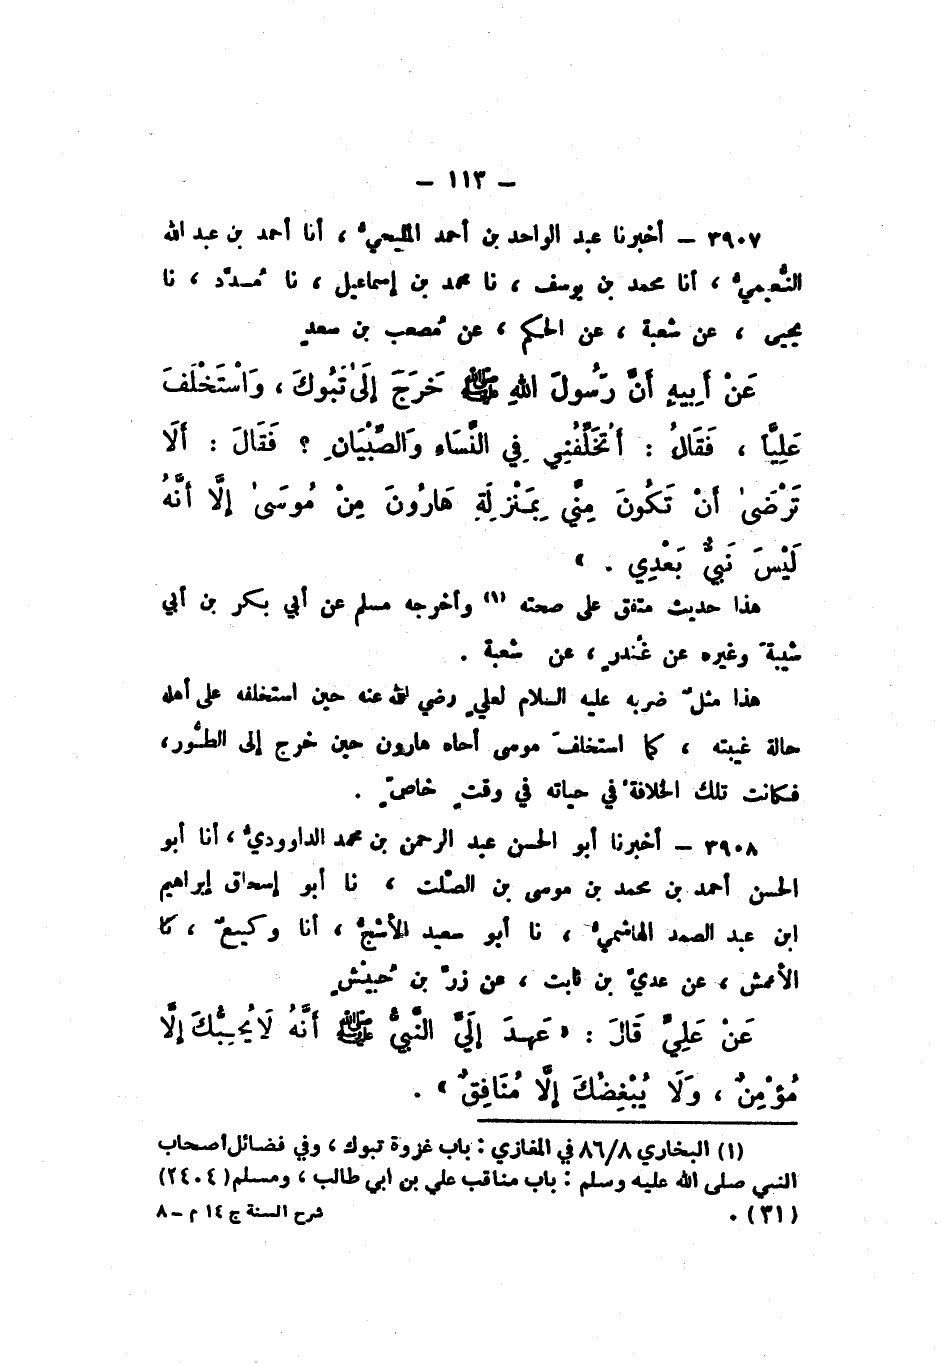 – ١١٣ –
٣٩٠٧ – أخبرنا عبد الواحد بن أحمد المليحيُّ ، أنا أحمد بن عبد الله
النُّعيميُّ ، أنا محمد بن يوسف ، نا محمد بن إسماعيل ، نا مُسدّد ، نا
يحيى ، عن شعبة ، عن الحكم ، عن مُصعب بن سعدٍ
عَنْ أَبِيهِ أَنَّ رَسُولَ اللهِ ﷺ خَرَجَ إِلَىٰ تَبُوكَ ، وَاسْتَخْلَفَ
عَلِيَّاً ، فَقَالَ : أَتُخَلِّفُنِي فِي النِّسَاءِ وَالصِّبْيَانِ ؟ فَقَالَ : أَلَا
تَرْضَىٰ أَنْ تَكُونَ مِنِّي بِمَنْزِلَةِ هَارُونَ مِنْ مُوسَىٰ إِلَّا أَنَّهُ
لَيْسَ نَبِيٌّ بَعْدِي . »
هذا حديث متفق على صحته (١) وأخرجه مسلم عن أبي بكر بن أبي
شيبةَ وغيره عن غُندرٍ ، عن شعبة .
هذا مثلٌ ضربه عليه السلام لعليٍ رضي الله عنه حين استخلفه على أهله
حالة غيبته ، كما استخلفَ موسى أخاه هارون حين خرج إلى الطُّور ،
فكانت تلك الخلافةُ في حياته في وقتٍ خاصٍّ .
٣٩٠٨ – أخبرنا أبو الحسن عبد الرحمن بن محمد الداووديُّ ، أنا أبو
الحسن أحمد بن محمد بن موسى بن الصَّلت ، نا أبو إسحاق إبراهيم
ابن عبد الصمد الهاشميُّ ، نا أبو سعيد الأشجُّ ، أنا وكيعٌ ، نا
الأعمش ، عن عديِّ بن ثابت ، عن زرِّ بن حُبيْشٍ
عَنْ عَلِيٍّ قَالَ : « عَهِدَ إِلَيَّ النَّبِيُّ ﷺ أَنَّهُ لَا يُحِبُّكَ إِلَّا
مُؤْمِنٌ ، وَلَا يُبْغِضُكَ إِلَّا مُنَافِقٌ » .
(١) البخاري ٨٦/٨ في المغازي : باب غزوة تبوك ، وفي فضائل أصحاب
النبي صلى الله عليه وسلم : باب مناقب علي بن ابي طالب ، ومسلم (٢٤٠٤)
(٣١) .
شرح السنة ج ١٤ م – ٨